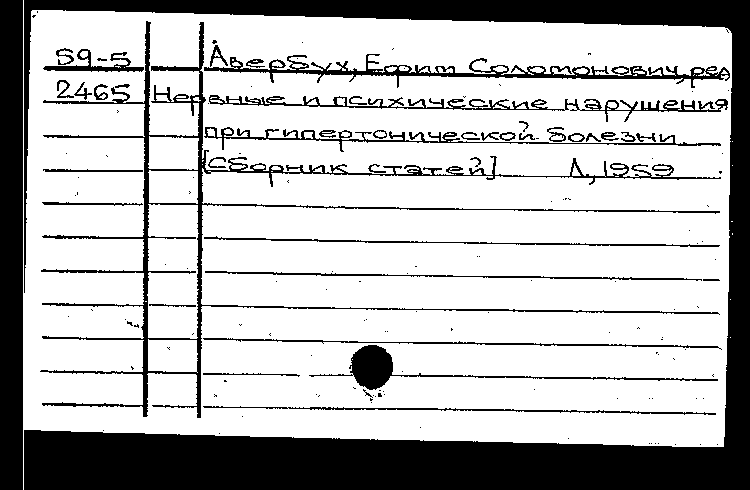 59-5 Авербух, Ефим Соломонович, ред
2465 Нервные и психические нарушения
при гипертонической болезни.
[Сборник статей] Л, 1959